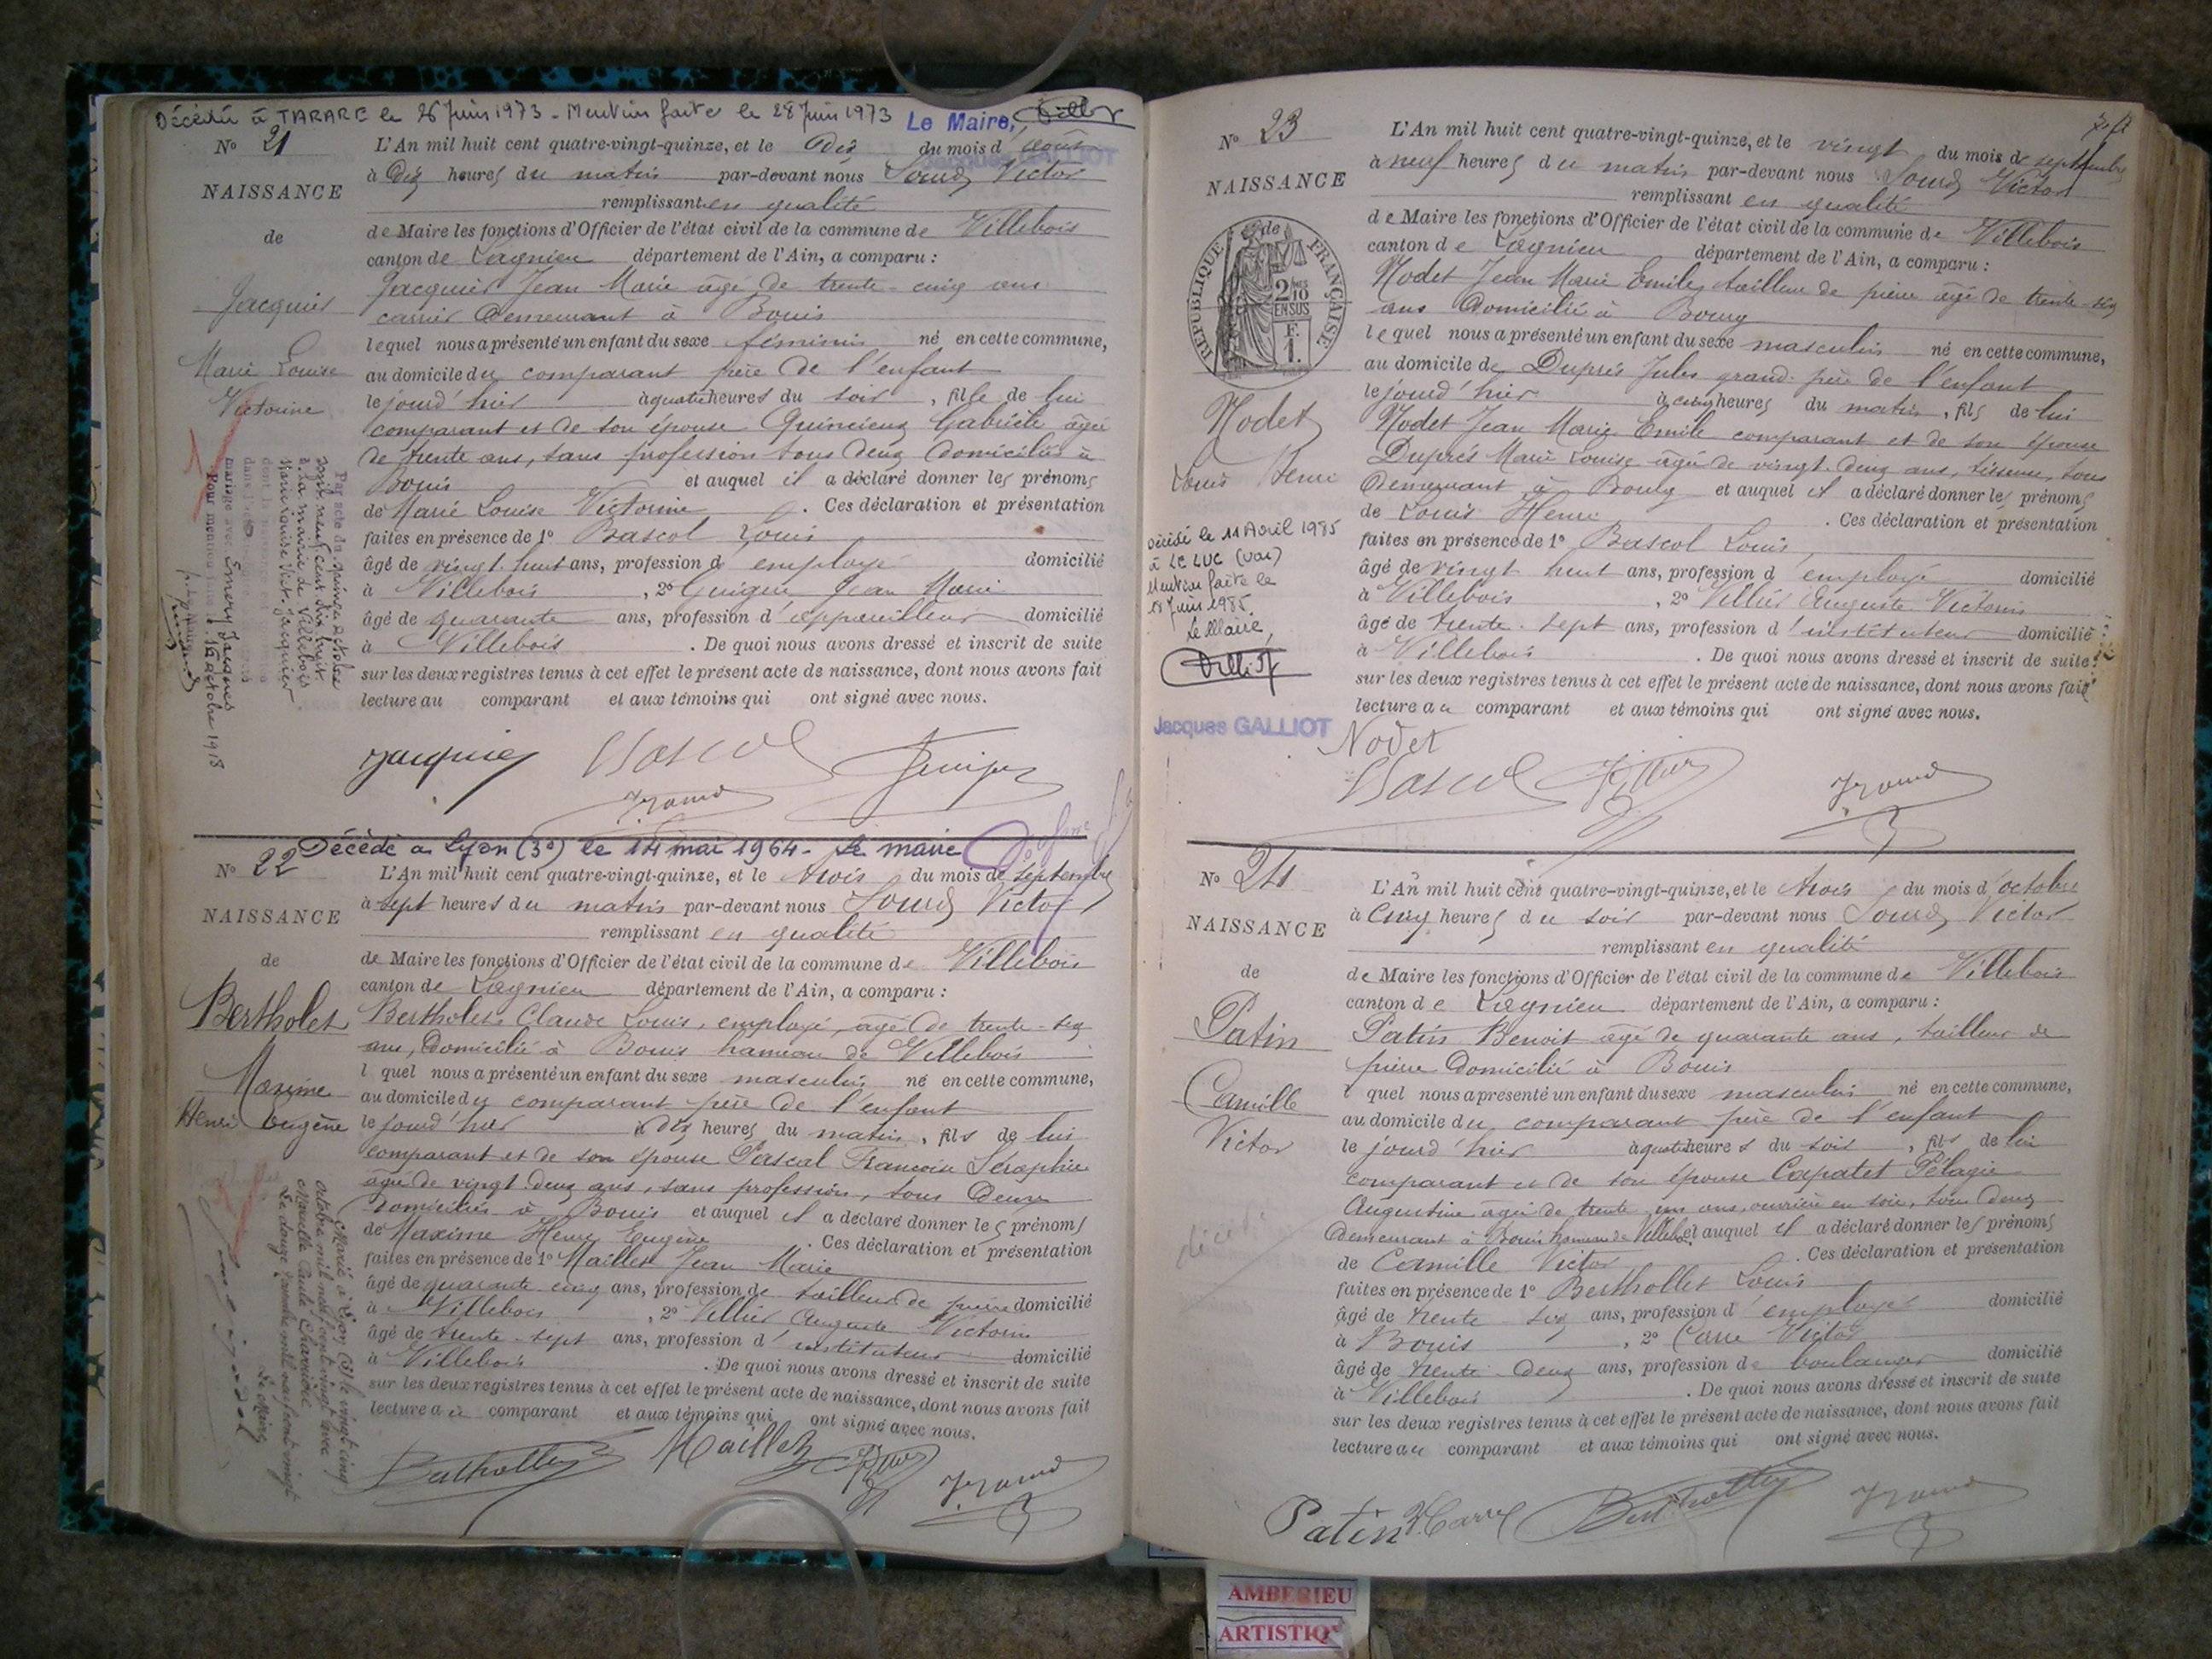 Décédée à TARARE le 26 Juin 1973 - Mention faite le 28 Juin 1973 Le Maire,
Jacques GALLIOT
N° 21
NAISSANCE
de
Jacquier
Marie Louise
Victorine
L'An mil huit cent quatre-vingt-quinze, et le dix du mois d'août
à dix heures du matin par-devant nous Sourd Victor
remplissant en qualité
de Maire les fonctions d'Officier de l'état civil de la commune de Villebois
canton de Lagnieu département de l'Ain, a comparu :
Jacquier Jean Marie âgé de trente-cinq ans
carrier demeurant à Bouis
lequel nous a présenté un enfant du sexe féminin né en cette commune,
au domicile du comparant père de l'enfant
le jourd'hier à quatre heures du soir, fille de lui
comparant et de son épouse Quincieux Gabrièle âgée
de trente ans, sans profession tous deux domiciliés à
Bouis et auquel il a déclaré donner les prénoms
de Marie Louise Victorine. Ces déclaration et présentation
faites en présence de 1° Bascol Louis
âgé de vingt huit ans, profession d'employé domicilié
à Villebois, 2° Guigue Jean Marie
âgé de quarante ans, profession d'appareilleur domicilié
à Villebois. De quoi nous avons dressé et inscrit de suite
sur les deux registres tenus à cet effet le présent acte de naissance, dont nous avons fait
lecture au comparant et aux témoins qui ont signé avec nous.
Par acte du quinze octobre
mil neuf cent dix huit
à la mairie de Villebois
Marie Louise Vict. Jacquier
mariage avec Emery Jacques
Pour mention 16 octobre 1918
Jacquier Bascol
Décédé à Lyon (3e) le 14 mai 1964 - Le maire
N° 22
NAISSANCE
de
Bertholet
Maxime
Henri Eugène
L'An mil huit cent quatre-vingt-quinze, et le trois du mois de septembre
à sept heures du matin par-devant nous Sourd Victor
remplissant en qualité
de Maire les fonctions d'Officier de l'état civil de la commune de Villebois
canton de Lagnieu département de l'Ain, a comparu :
Bertholet Claude Louis, employé, âgé de trente-six
ans, domicilié à Bouis hameau de Villebois
l quel nous a présenté un enfant du sexe masculin né en cette commune,
au domicile du comparant père de l'enfant
le jourd'hier à dix heures du matin, fils de lui
comparant et de son épouse Pascal Françoise Séraphie
âgée de vingt deux ans, sans profession, tous deux
domiciliés à Bouis et auquel il a déclaré donner les prénoms
de Maxime Henri Eugène. Ces déclaration et présentation
faites en présence de 1° Maillet Jean Marie
âgé de quarante cinq ans, profession de tailleur de pierre domicilié
à Villebois, 2° Vellier Auguste Victorin
âgé de trente-sept ans, profession d'instituteur domicilié
à Villebois. De quoi nous avons dressé et inscrit de suite
sur les deux registres tenus à cet effet le présent acte de naissance, dont nous avons fait
lecture au comparant et aux témoins qui ont signé avec nous.
Marié à Lyon (3) le vingt cinq
octobre mil neuf cent vingt avec
Marcelle Paule
Le Maire
Bertholet Maillet
N° 23
NAISSANCE
de
RÉPUBLIQUE FRANÇAISE
2/10 EN SUS
F. 1.
Nodet
Louis Henri
Décédé le 11 Avril 1985
à LE LUC (Var)
Mention faite le
18 Juin 1985.
Le Maire,
Jacques GALLIOT
L'An mil huit cent quatre-vingt-quinze, et le vingt du mois de septembre
à neuf heures du matin par-devant nous Sourd Victor
remplissant en qualité
de Maire les fonctions d'Officier de l'état civil de la commune de Villebois
canton de Lagnieu département de l'Ain, a comparu :
Nodet Jean Marie Emile, tailleur de pierre âgé de trente-six
ans domicilié à Bourg
lequel nous a présenté un enfant du sexe masculin né en cette commune,
au domicile de Duprés Jules grand-père de l'enfant
le jourd'hier à cinq heures du matin, fils de lui
Nodet Jean Marie Emile comparant et de son épouse
Duprés Marie Louise âgée de vingt-deux ans, tisseuse, tous
demeurant à Bourg et auquel il a déclaré donner les prénoms
de Louis Henri. Ces déclaration et présentation
faites en présence de 1° Bascol Louis
âgé de vingt huit ans, profession d'employé domicilié
à Villebois, 2° Vellier Auguste Victorin
âgé de trente-sept ans, profession d'instituteur domicilié
à Villebois. De quoi nous avons dressé et inscrit de suite
sur les deux registres tenus à cet effet le présent acte de naissance, dont nous avons fait
lecture au comparant et aux témoins qui ont signé avec nous.
Nodet
Bascol
N° 24
NAISSANCE
de
Patin
Camille
Victor
décédé
L'An mil huit cent quatre-vingt-quinze, et le trois du mois d'octobre
à cinq heures du soir par-devant nous Sourd Victor
remplissant en qualité
de Maire les fonctions d'Officier de l'état civil de la commune de Villebois
canton de Lagnieu département de l'Ain, a comparu :
Patin Benoit âgé de quarante ans, tailleur de
pierre domicilié à Bouis
l quel nous a présenté un enfant du sexe masculin né en cette commune,
au domicile du comparant père de l'enfant
le jourd'hier à quatre heures du soir, fils de lui
comparant et de son épouse Capatet Pélagie
Augustine âgée de trente un ans, ouvrière en soie, tous deux
demeurant à Bouis hameau de Villebois et auquel il a déclaré donner les prénoms
de Camille Victor. Ces déclaration et présentation
faites en présence de 1° Berthollet Louis
âgé de trente six ans, profession d'employé domicilié
à Bouis, 2° Carre Victor
âgé de trente-deux ans, profession de boulanger domicilié
à Villebois. De quoi nous avons dressé et inscrit de suite
sur les deux registres tenus à cet effet le présent acte de naissance, dont nous avons fait
lecture au comparant et aux témoins qui ont signé avec nous.
Patin
AMBERIEU
ARTISTIQ